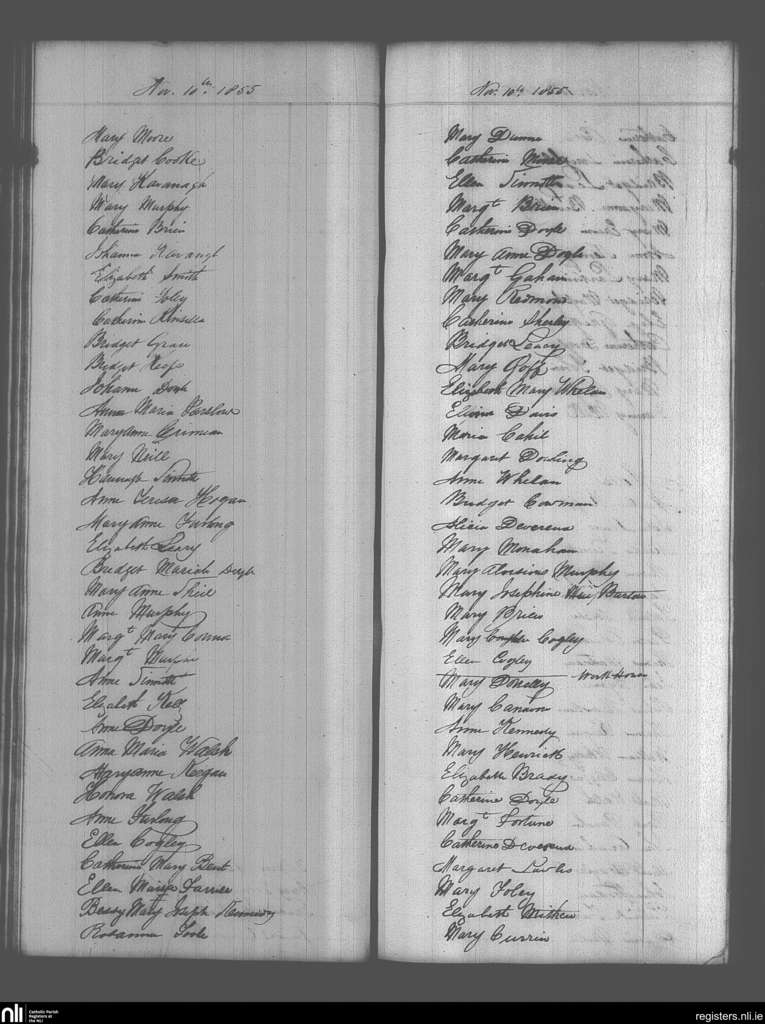 Nov. 10th. 1855
Mary Moore
Bridget Cooke
Mary Kavanagh
Mary Murphy
Catherine Brien
Johanna Kavangh
Elizabeth Smith
Catherine Foley
Catherine Kinsella
Bridget Grace
Bridget Keefe
Johana Doyle
Anna Maria Barslow
Maryanne
Mary Neill
Hannagh Sinnott
Anne Teresa Keegan
Mary Anne Furlong
Elizabeth Leary
Bridget Mariah Doyle
Mary Anne
Anne Murphy
Margt Mary
Margt
Anne Sinnott
Elizabeth
Anne Doyle
Anna Maria Walsh
Maryanne Keegan
Honora Walsh
Anne Furlong
Ellen Cogley
Catherine Mary Bent
Ellen Mary
Bessy Mary Joseph Kennedy
Rosanna Toole
Nov. 10th. 1855
Mary Dunne
Catherine
Ellen Sinnott
Margt Brien
Catherine Doyle
Mary Anne Doyle
Margt Gahan
Mary Redmond
Catherine Sherley
Bridget Leacy
Mary Goff
Elizabeth Mary Whelan
Davis
Maria Cahil
Margaret Dowling
Anne Whelan
Bridget Cowman
Alicia Devereux
Mary Monahan
Mary Aloysius Murphy
Mary Josephine Barlow
Mary Brien
Mary Cogley
Ellen Cogley
Mary Donelly Work House
Mary Cannon
Anne Kennedy
Mary Henrick
Elizabeth Brady
Catherine Doyle
Margt Fortune
Catherine Devereux
Margaret
Mary Foley
Elizabeth
Mary Currin
nli
Catholic Parish
Registers at
the NLI
registers.nli.ie